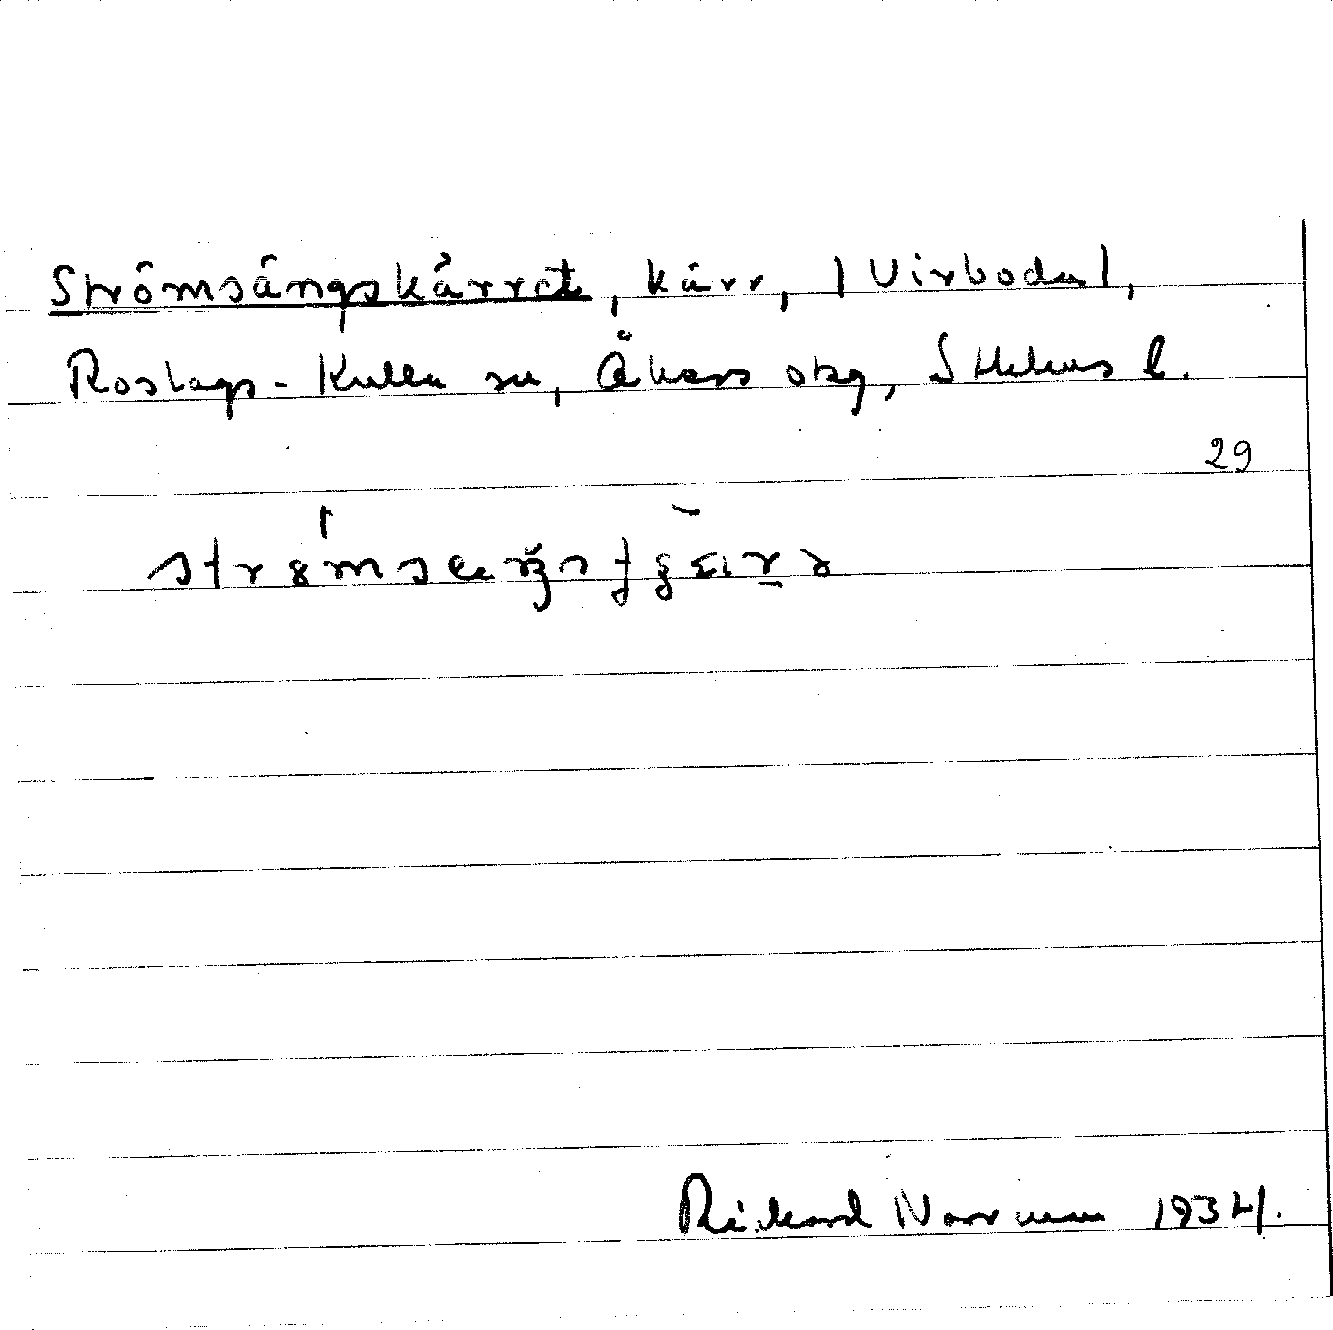 Strömsängskärret, kärr, | Virboda |,
Roslags-Kulla sn, Åkers skg, Sthlms l.
29
Rickard Norrman 1934.